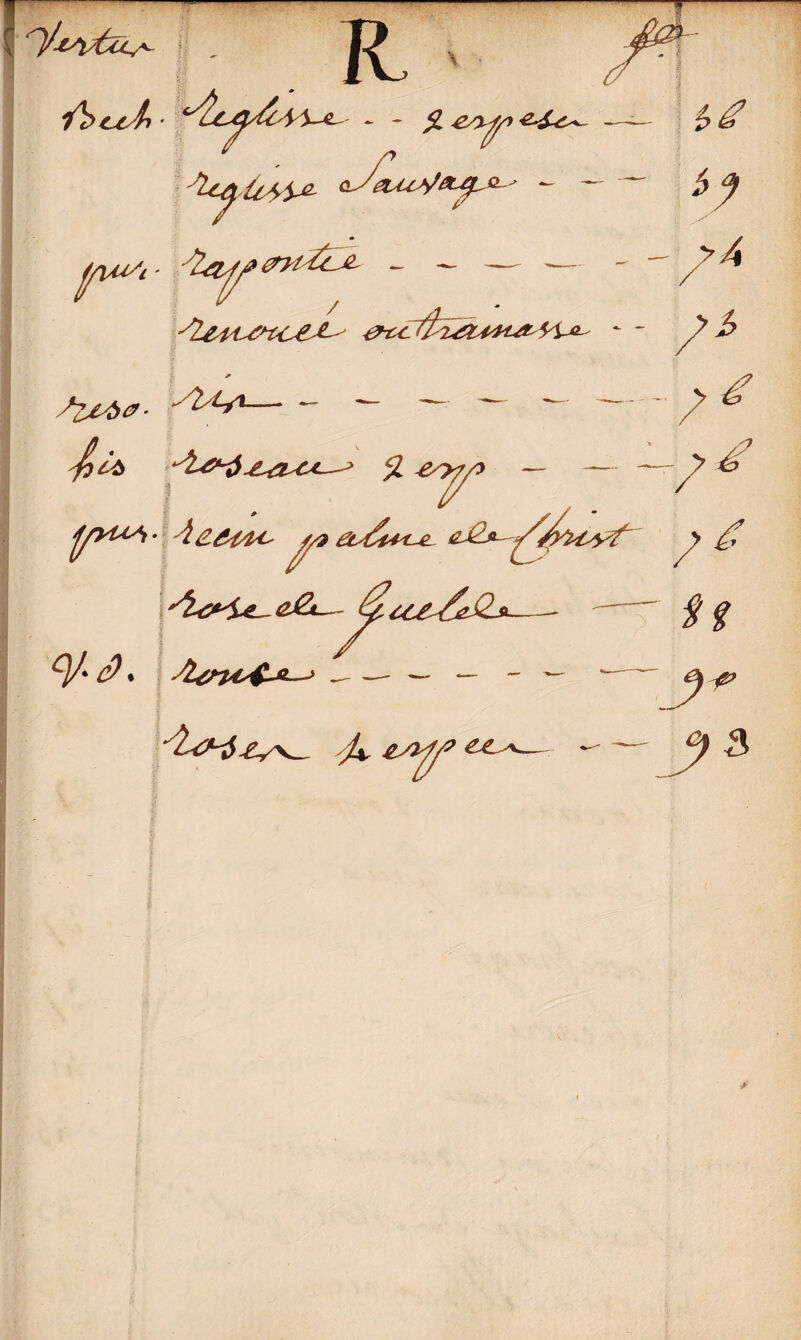 Vertus R fo.
Bech. Reglisse - - 2 espeses — 56
Reglisse Sauvage - — — 59
purg. Raponticé - — — — - - 74
Renoueé ou Trainasse - - 75
reso. Ris — - — — — — — 76
his Roseau 2 esp — — — 76
purg. Recin palme de Christ 76
Rose de Gueldre — — 88
V. D. Ronce - — — - - — — 90
Roses 4 especes — — 93